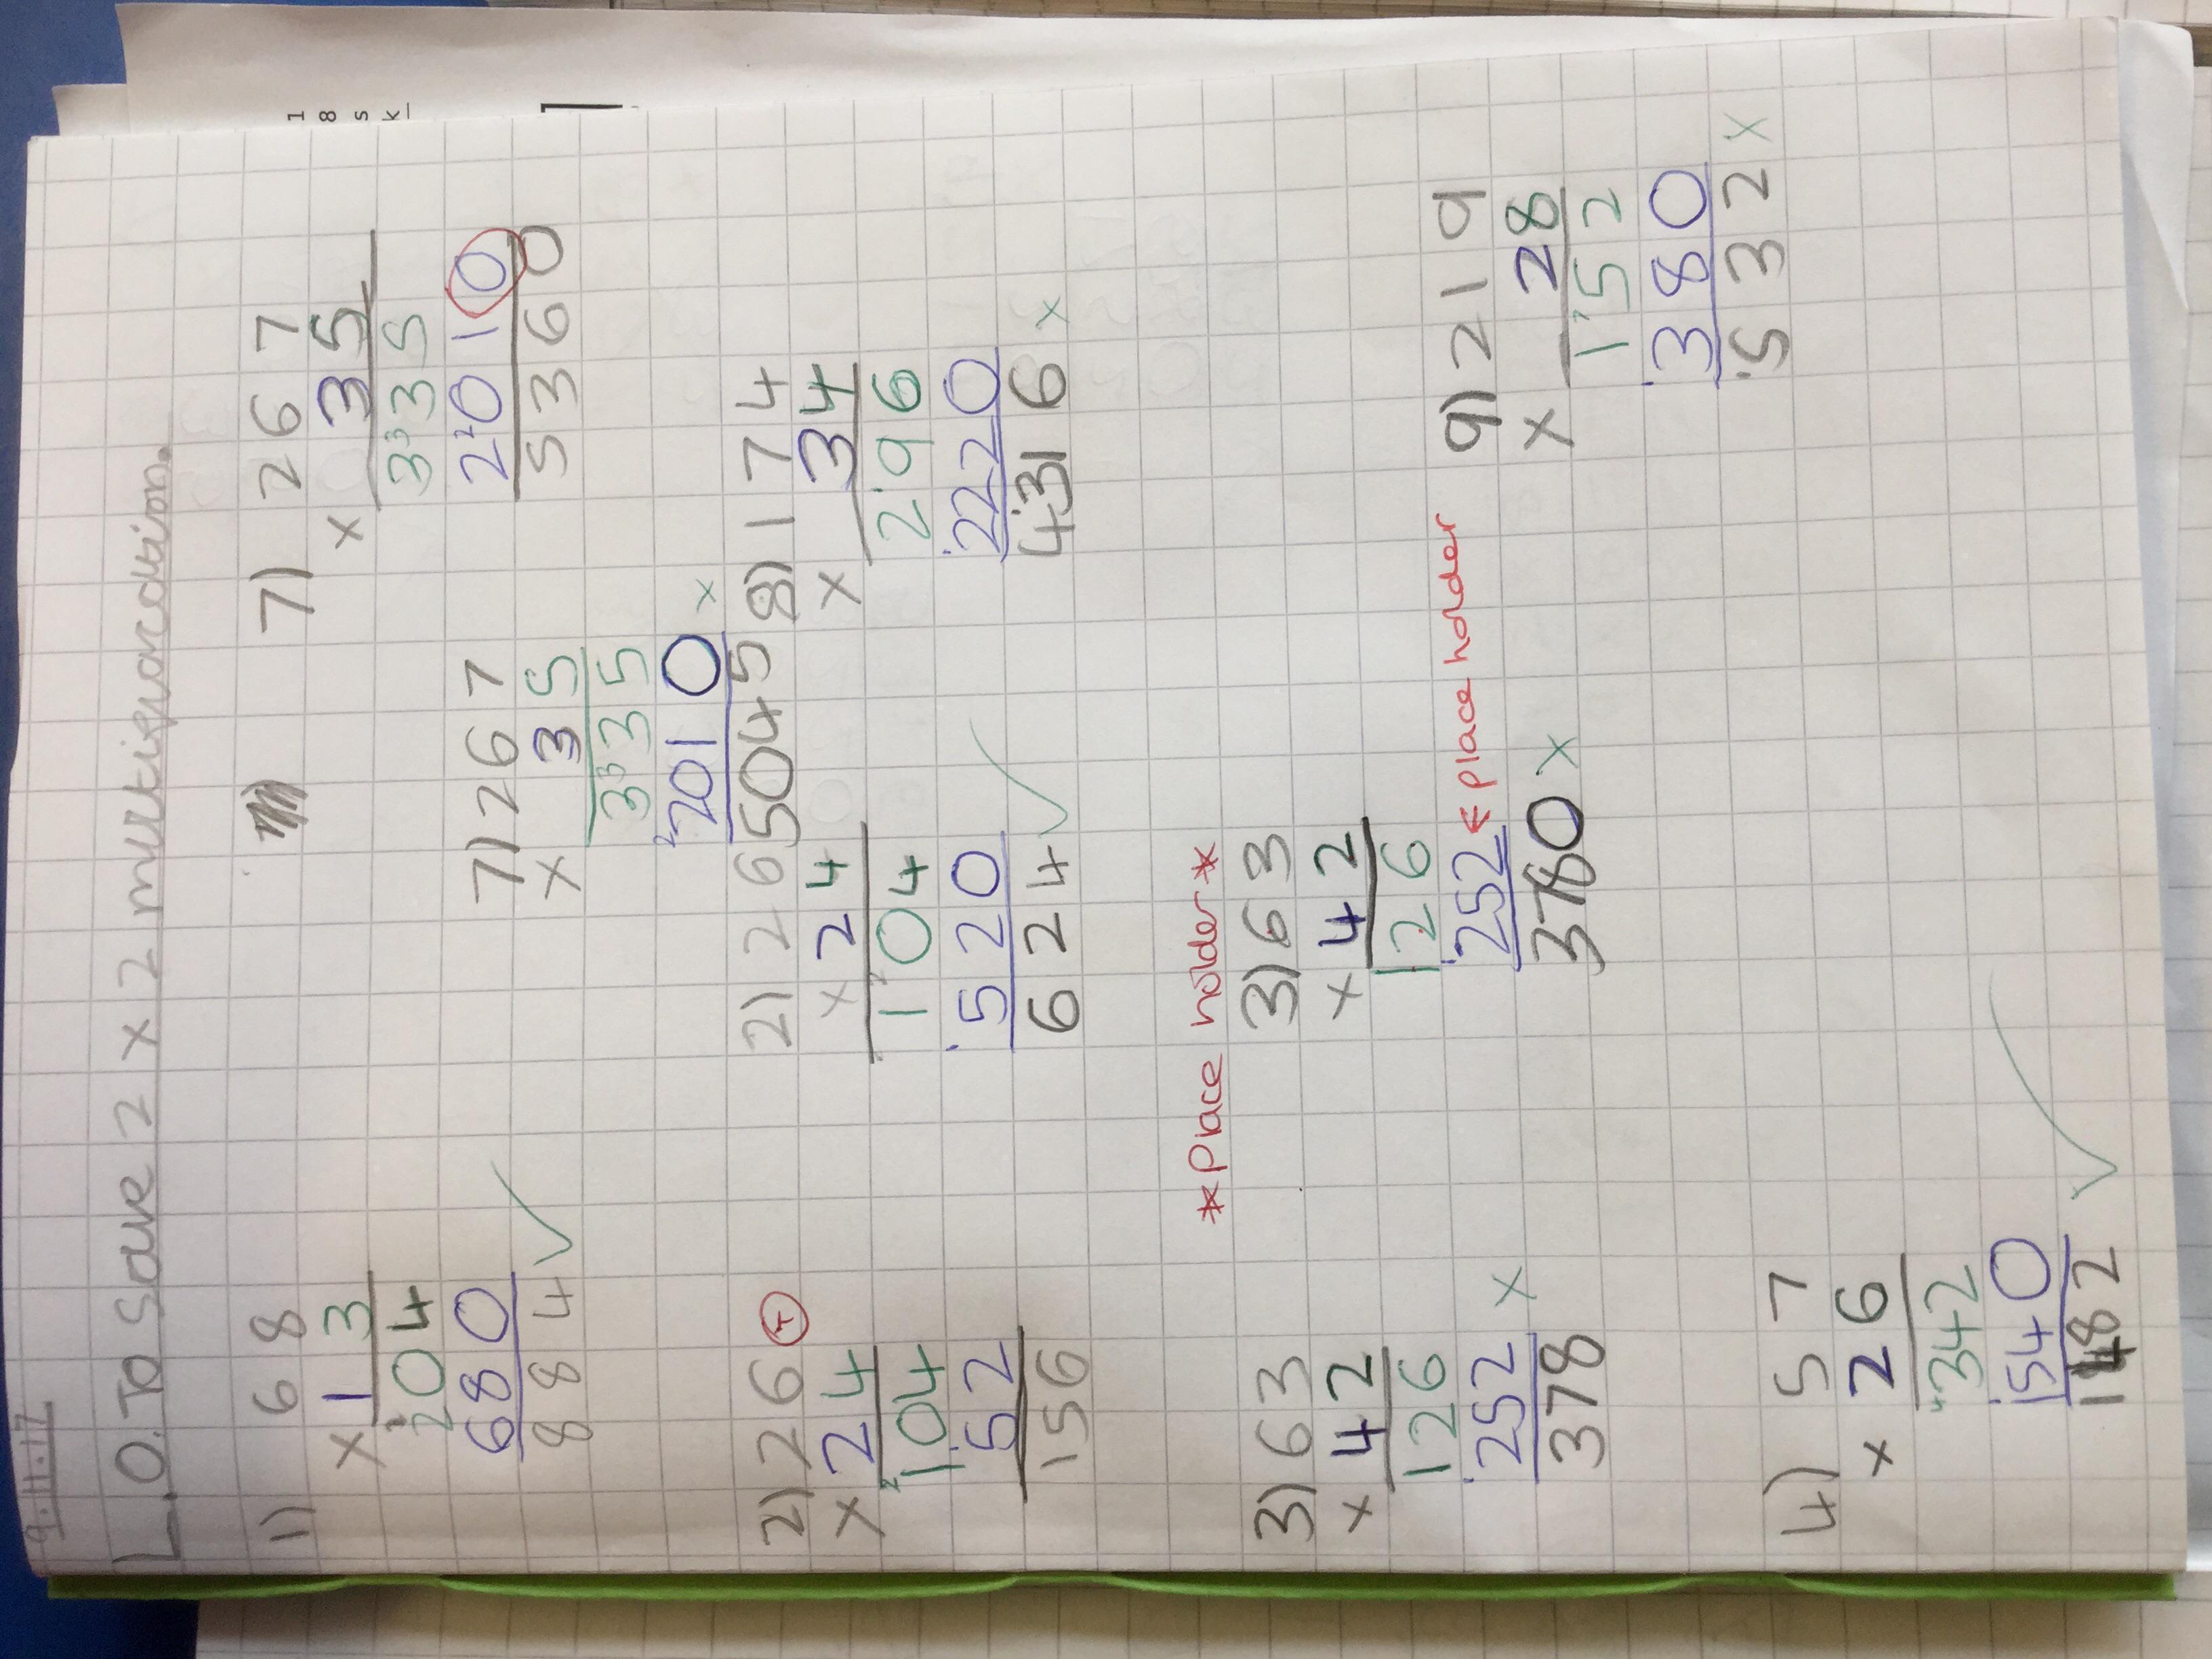 9.11.17
L.O. To Solve 2 x 2 multiplication.
1) 68
x 13
204
680
884 ✓
2) 26
x 24
104
52
156
3) 63
x 42
126
252
378 x
4) 57
x 26
342
1540
1482 ✓
7) 267
x 35
3335
2010
5045 x
2) 26
x 24
104
520
624 ✓
*Place holder*
3) 63
x 42
126
252 ← place holder
3780 x
7) 267
x 35
3335
2010
5360
8) 174
x 34
296
2220
4316 x
9) 219
x 28
152
380
532 x
1
8
s
k